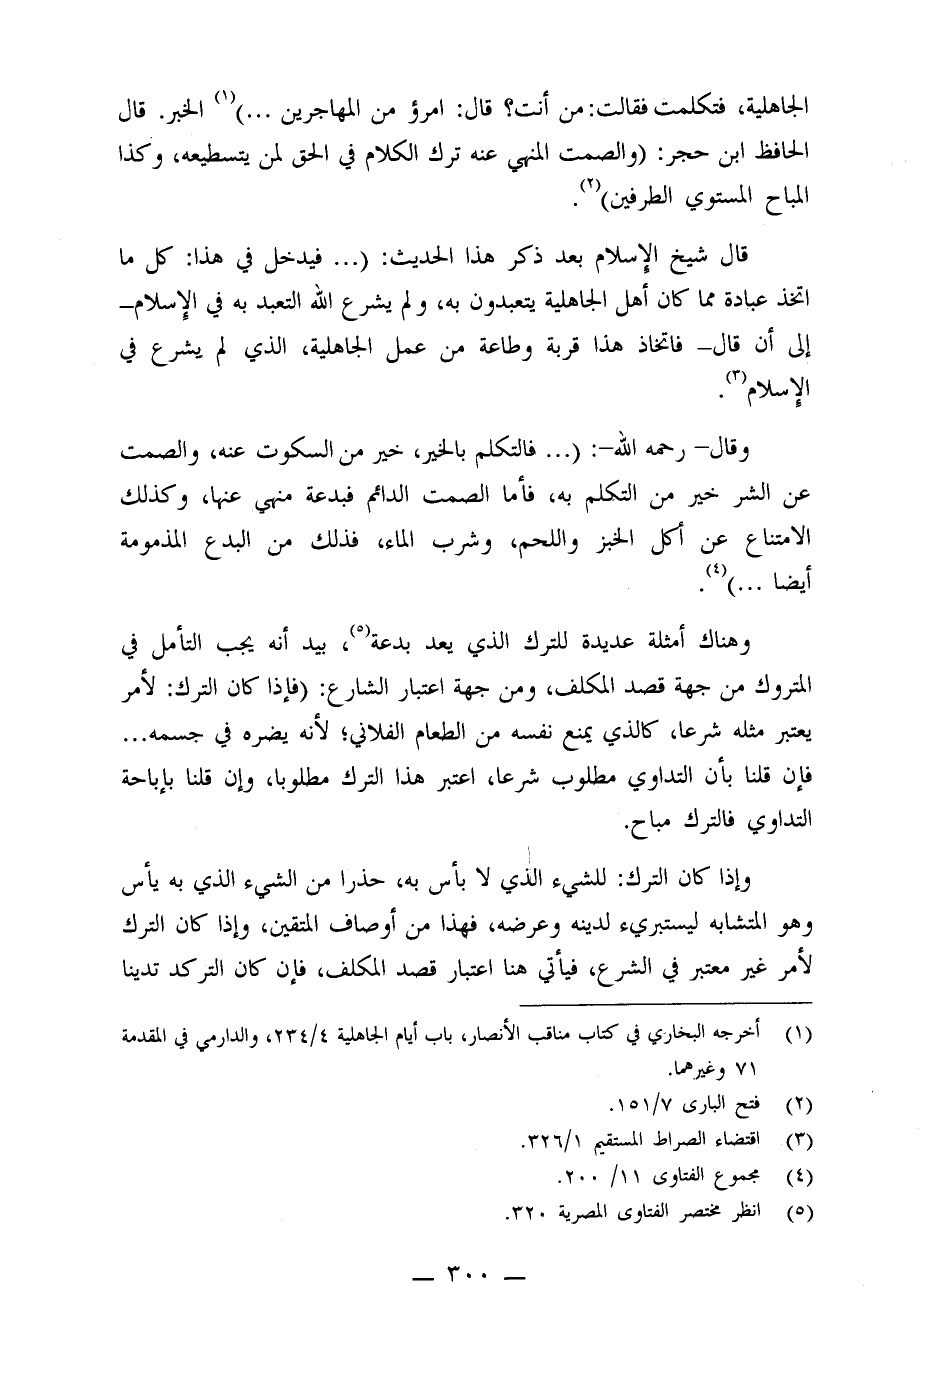 الجاهلية، فتكلمت فقالت: من أنت؟ قال: امرؤ من المهاجرين ...)(١) الخبر. قال
الحافظ ابن حجر: (والصمت المنهي عنه ترك الكلام في الحق لمن يتسطيعه، وكذا
المباح المستوي الطرفين)(٢).
قال شيخ الإسلام بعد ذكر هذا الحديث: (... فيدخل في هذا: كل ما
اتخذ عبادة مما كان أهل الجاهلية يتعبدون به، ولم يشرع الله التعبد به في الإسلام–
إلى أن قال– فاتخاذ هذا قربة وطاعة من عمل الجاهلية، الذي لم يشرع في
الإسلام(٣).
وقال– رحمه الله–: (... فالتكلم بالخير، خير من السكوت عنه، والصمت
عن الشر خير من التكلم به، فأما الصمت الدائم فبدعة منهي عنها، وكذلك
الامتناع عن أكل الخبز واللحم، وشرب الماء، فذلك من البدع المذمومة
أيضا ...)(٤).
وهناك أمثلة عديدة للترك الذي يعد بدعة(٥)، بيد أنه يجب التأمل في
المتروك من جهة قصد المكلف، ومن جهة اعتبار الشارع: (فإذا كان الترك: لأمر
يعتبر مثله شرعا، كالذي يمنع نفسه من الطعام الفلاني؛ لأنه يضره في جسمه...
فإن قلنا بأن التداوي مطلوب شرعا، اعتبر هذا الترك مطلوبا، وإن قلنا بإباحة
التداوي فالترك مباح.
وإذا كان الترك: للشيء الذي لا بأس به، حذرا من الشيء الذي به يأس
وهو المتشابه ليستبريء لدينه وعرضه، فهذا من أوصاف المتقين، وإذا كان الترك
لأمر غير معتبر في الشرع، فيأتي هنا اعتبار قصد المكلف، فإن كان التركد تدينا
(١) أخرجه البخاري في كتاب مناقب الأنصار، باب أيام الجاهلية ٢٣٤/٤، والدارمي في المقدمة
٧١ وغيرهما.
(٢) فتح البارى ١٥١/٧.
(٣) اقتضاء الصراط المستقيم ٣٢٦/١.
(٤) مجموع الفتاوى ١١/ ٢٠٠.
(٥) انظر مختصر الفتاوى المصرية ٣٢٠.
– ٣٠٠ –